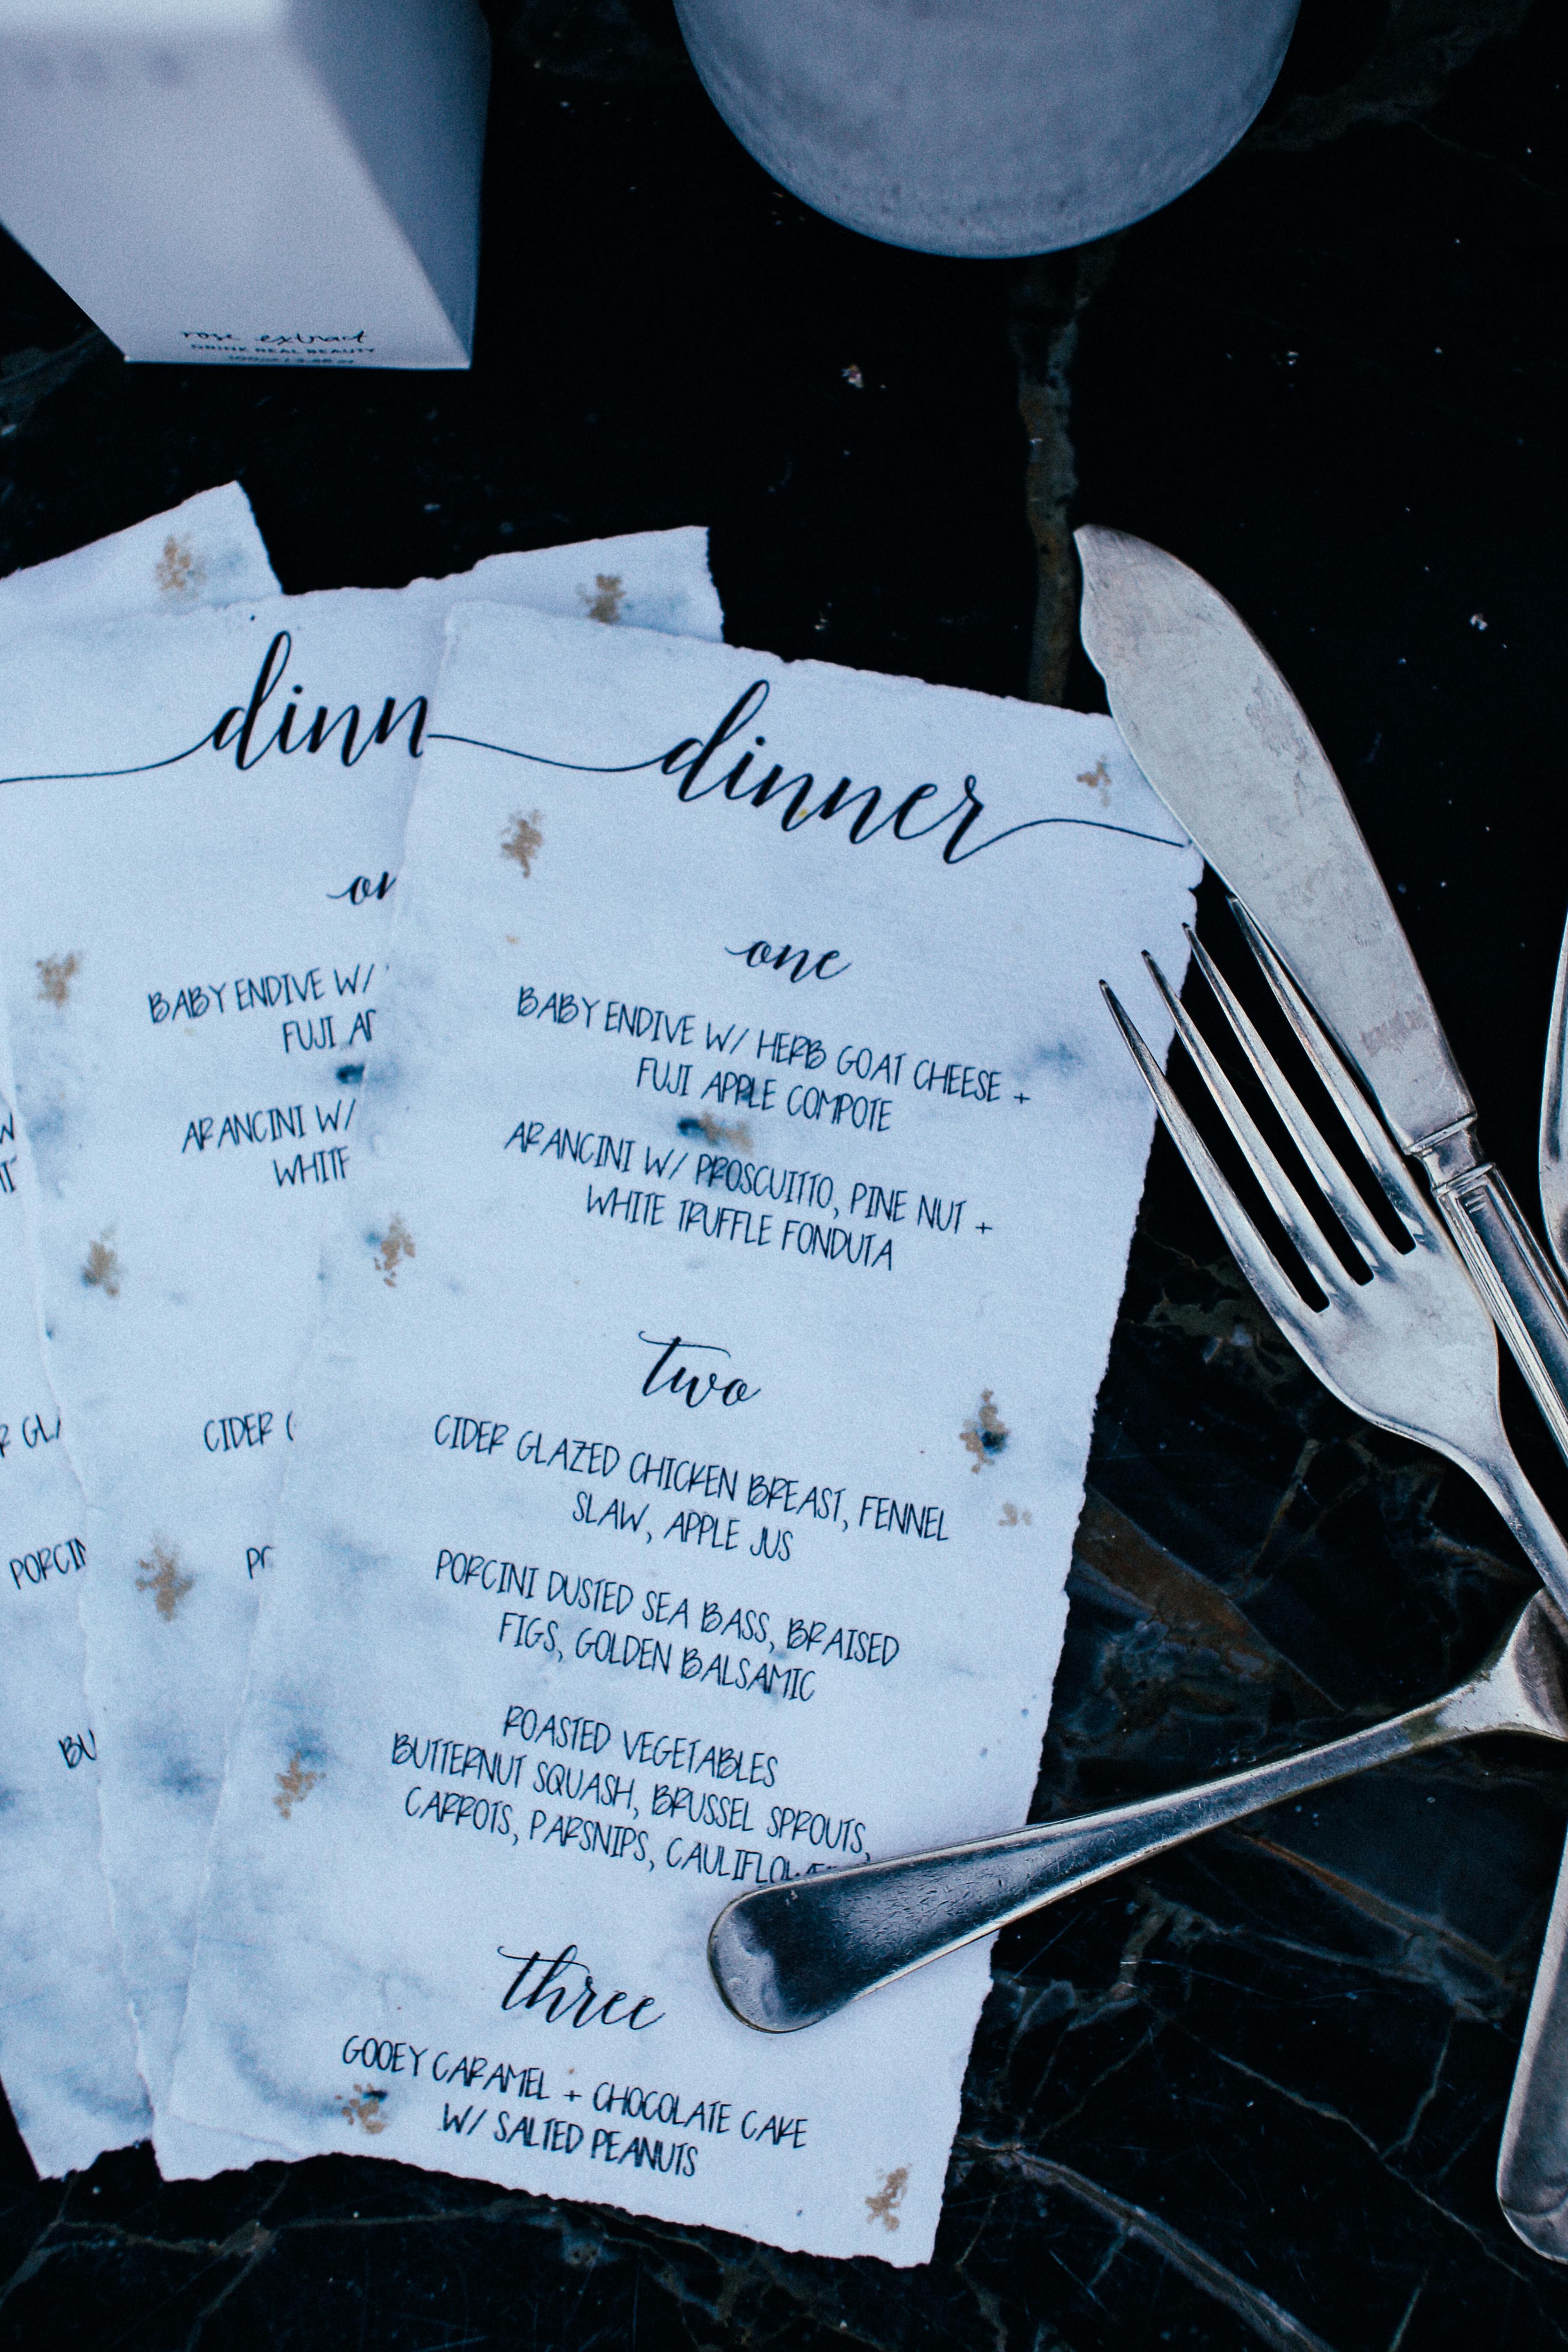 rose extract
DRINK REAL BEAUTY
dinn
BABY ENDIVE W/
FUJI
ARANCINI W/
CIDER
dinner
one
BABY ENDIVE W/ HERB GOAT CHEESE +
FUJI APPLE COMPOTE
ARANCINI W/ PROSCUITTO, PINE NUT +
WHITE TRUFFLE FONDUTA
two
CIDER GLAZED CHICKEN BREAST, FENNEL
SLAW, APPLE JUS
PORCINI DUSTED SEA BASS, BRAISED
FIGS, GOLDEN BALSAMIC
ROASTED VEGETABLES
BUTTERNUT SQUASH, BRUSSEL SPROUTS,
CARROTS, PARSNIPS, CAULIFLOWER
three
GOOEY CARAMEL + CHOCOLATE CAKE
W/ SALTED PEANUTS